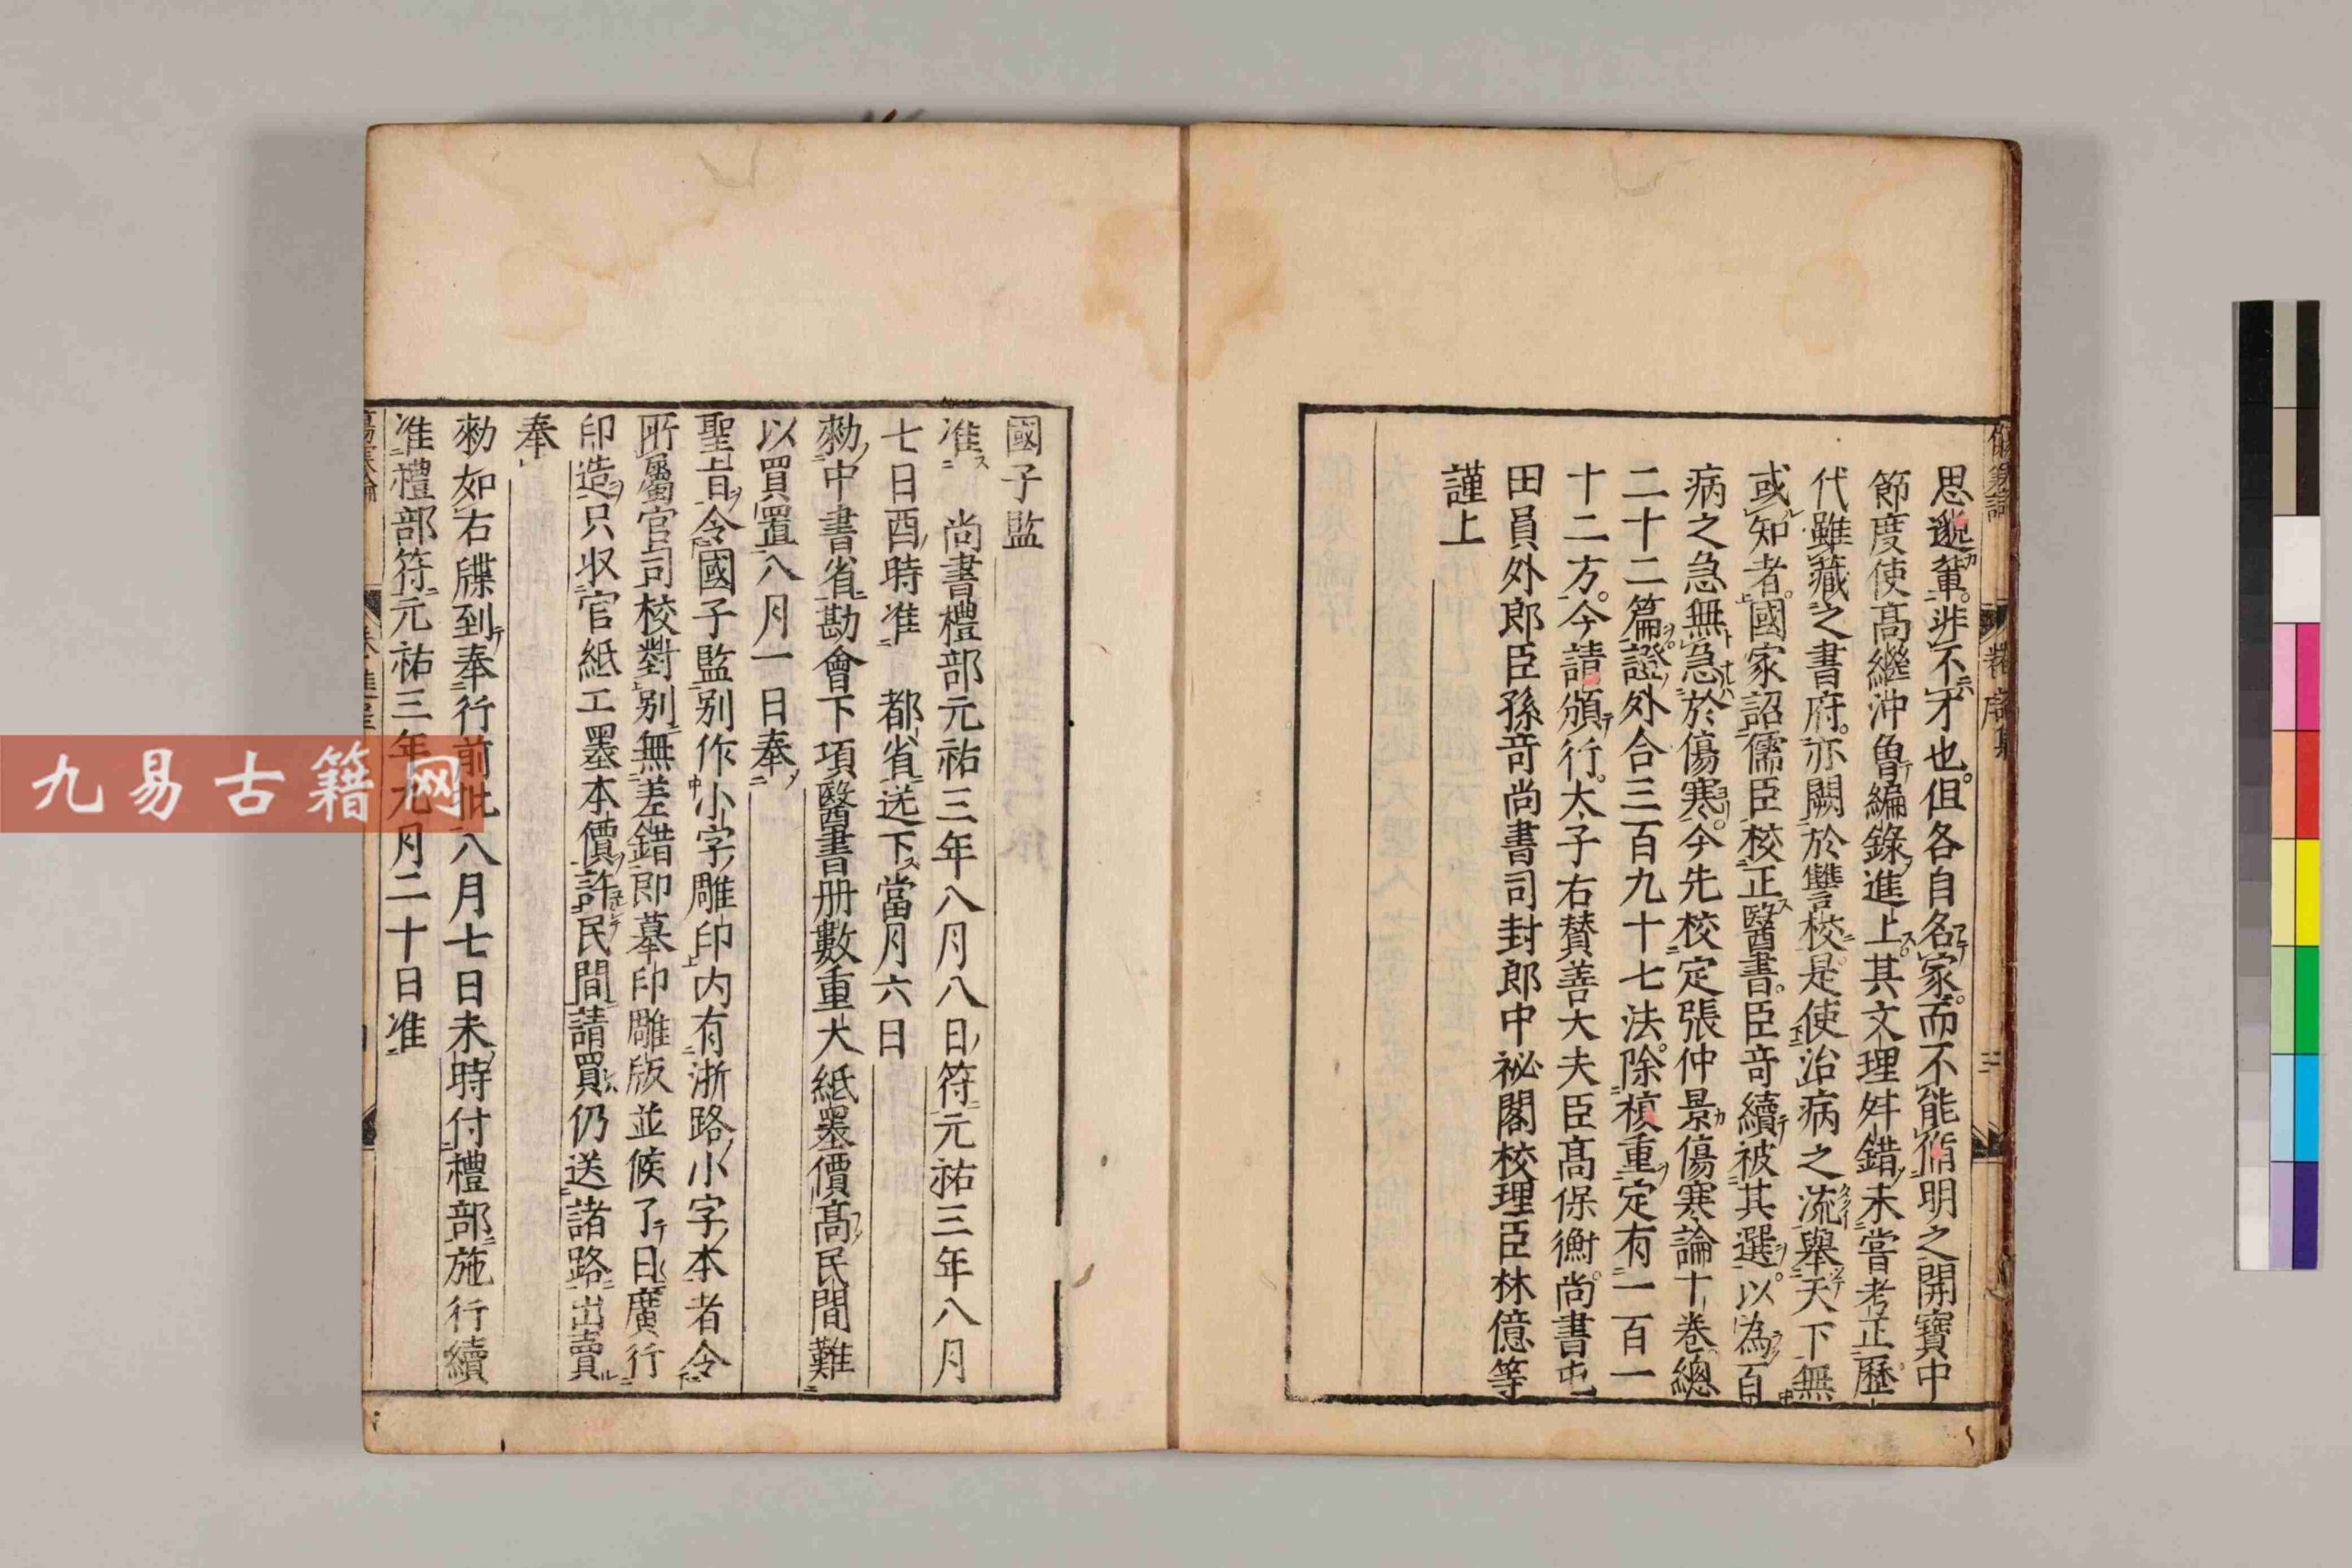 思邈輩非不才也但各自名家而不能脩明之開寶中
節度使高繼沖曽編錄進上其文理舛錯未嘗考正歷
代雖藏之書府亦闕於讐校是使治病之流舉天下無
或知者國家詔儒臣校正醫書臣竒續被其選以為百
病之急無急於傷寒今先校定張仲景傷寒論十卷總
二十二篇證外合三百九十七法除複重定有一百一
十二方今請頒行太子右賛善大夫臣高保衡尚書屯
田員外郎臣孫竒尚書司封郎中祕閣校理臣林億等
謹上
國子監
准 尚書禮部元祐三年八月八日符元祐三年八月
七日酉時准 都省送下當月六日
勑中書省勘會下項醫書册數重大紙墨價高民間難
以買置八月一日奉
聖旨令國子監别作小字雕印内有浙路小字本者令
所屬官司校對别無差錯即摹印雕版並候了日廣行
印造只収官紙工墨本價許民間請買仍送諸路出賣
奉
勑如右牒到奉行前批八月七日未時付禮部施行續
准禮部符元祐三年九月二十日准
九易古籍网